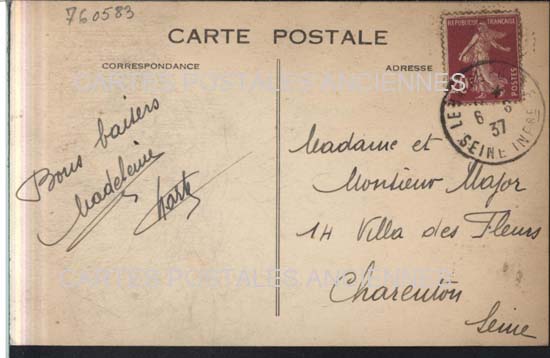 760583
CARTE POSTALE
CORRESPONDANCE
ADRESSE
RÉPUBLIQUE FRANÇAISE
POSTES
6
37
SEINE INFRE
CARTES POSTALES ANCIENNES
Bons baisers
Madeleine
Madame et
Monsieur Major
14 Villa des Fleurs
Charenton
Seine
CARTES POSTALES ANCIENNES